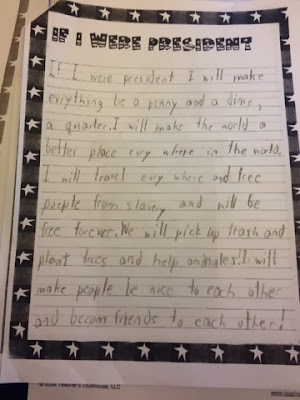 IF I WERE PRESIDENT
If I were president I will make
evrything be a penny and a dime,
a quarter. I will make the world a
better place evry where in the world.
I will travel evry where and free
people from slavery and will be
free forever. We will pick up trash and
plant trees and help animales! I will
make people be nice to each other
and becom friends to each other!